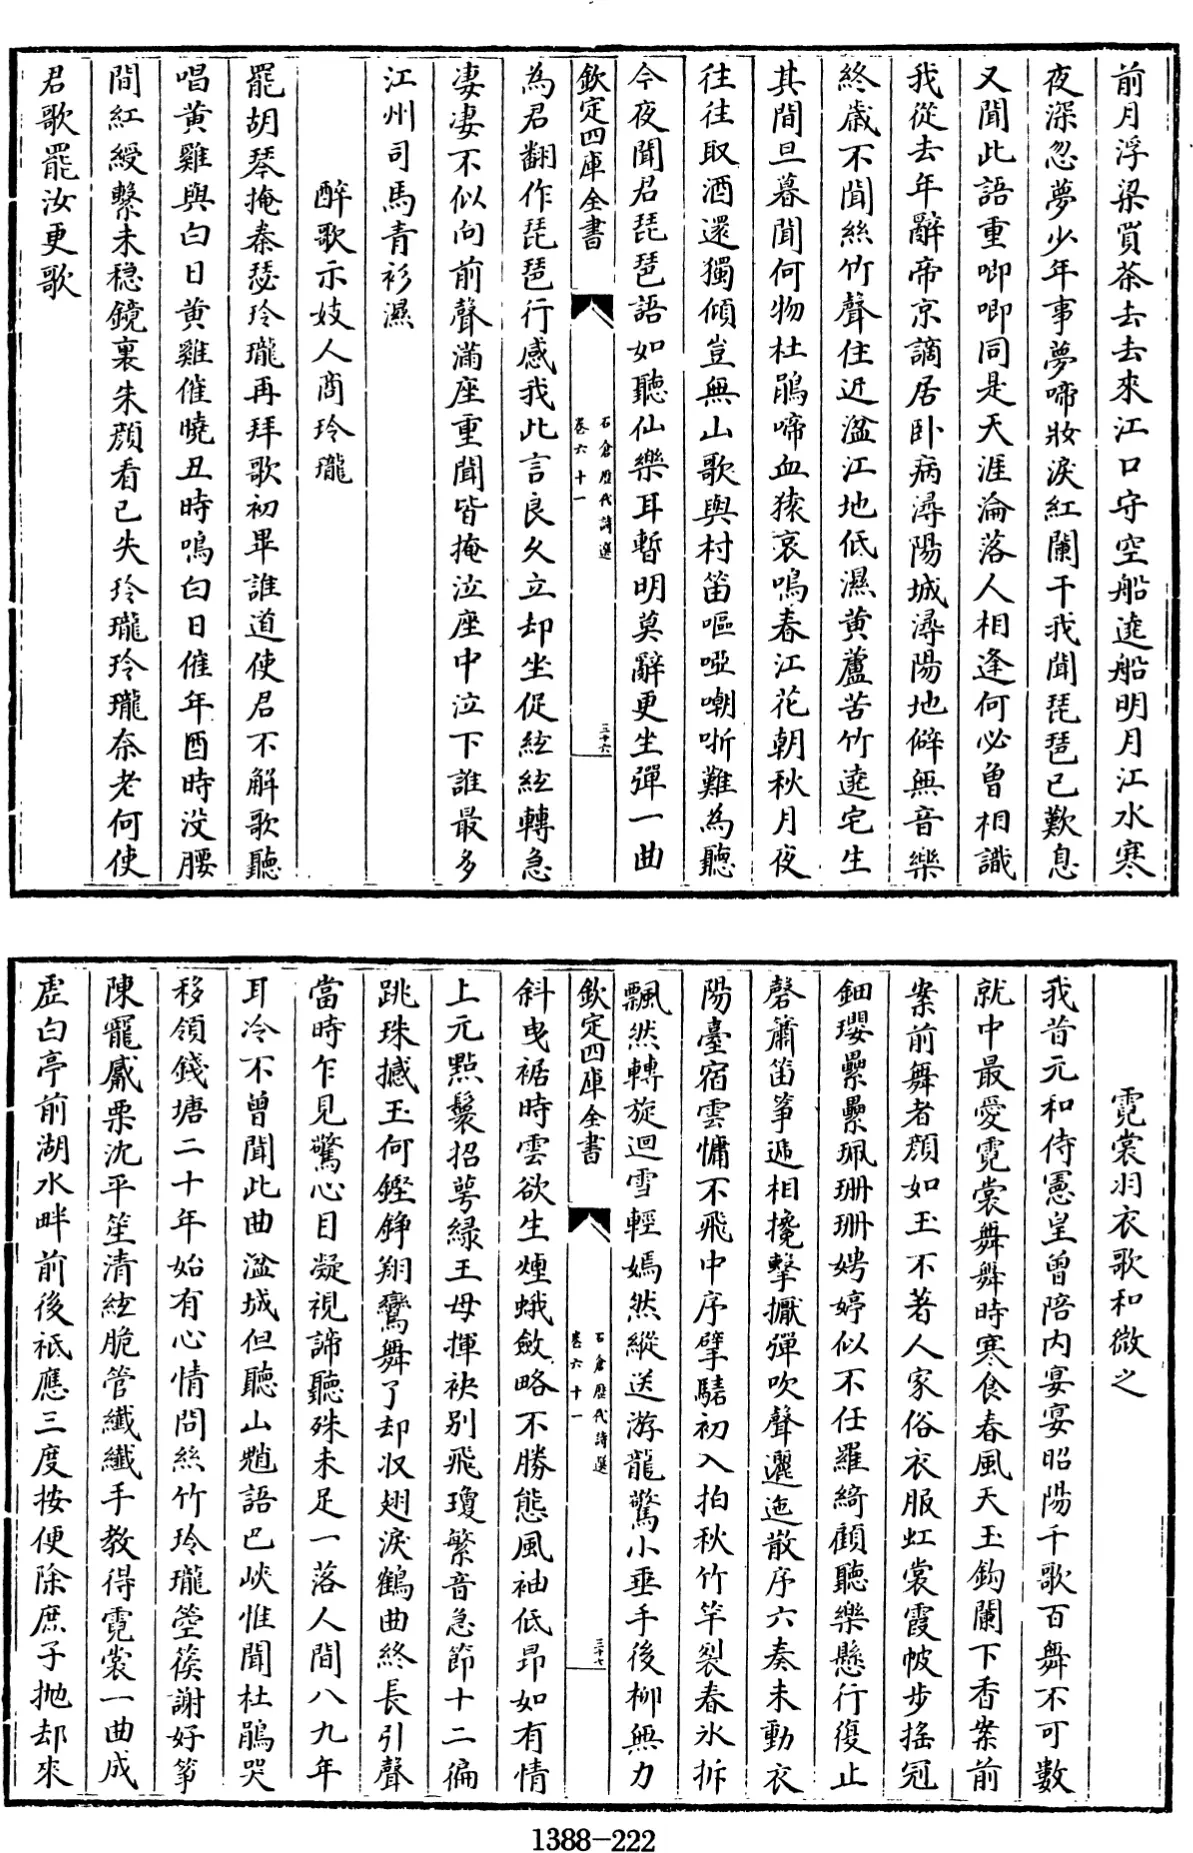 前月浮梁買茶去去來江口守空船遶船明月江水寒
夜深忽夢少年事夢啼妝淚紅闌干我聞琵琶已歎息
又聞此語重唧唧同是天涯淪落人相逢何必曾相識
我從去年辭帝京謫居卧病潯陽城潯陽地僻無音樂
終歲不聞絲竹聲住近湓江地低濕黄蘆苦竹遶宅生
其間旦暮聞何物杜鵑啼血猿哀鳴春江花朝秋月夜
往往取酒還獨傾豈無山歌與村笛嘔啞嘲哳難為聽
今夜聞君琵琶語如聽仙樂耳暫明莫辭更坐彈一曲
欽定四庫全書
石倉歷代詩選
卷六十一
三十六
為君翻作琵琶行感我此言良久立却坐促絃絃轉急
凄凄不似向前聲滿座重聞皆掩泣座中泣下誰最多
江州司馬青衫濕
醉歌示妓人商玲瓏
罷胡琴掩秦瑟玲瓏再拜歌初畢誰道使君不解歌聽
唱黄雞與白日黄雞催曉丑時鳴白日催年酉時没腰
間紅綬繫未穏鏡裏朱顔看已失玲瓏玲瓏奈老何使
君歌罷汝更歌
霓裳羽衣歌和微之
我昔元和侍憲皇曾陪内宴宴昭陽千歌百舞不可數
就中最愛霓裳舞舞時寒食春風天玉鈎闌下香案前
案前舞者顔如玉不著人家俗衣服虹裳霞帔步摇冠
鈿瓔纍纍珮珊珊娉婷似不任羅綺顧聽樂懸行復止
磬簫笛箏遞相攙擊擫彈吹聲邐迤散序六奏未動衣
陽臺宿雲慵不飛中序擘騞初入拍秋竹竿裂春氷拆
飄然轉旋迴雪輕嫣然縱送游龍驚小垂手後柳無力
欽定四庫全書
石倉歷代詩選
卷六十一
三十七
斜曵裾時雲欲生煙蛾斂略不勝態風袖低昂如有情
上元點鬟招萼緑王母揮袂别飛瓊繁音急節十二徧
跳珠撼玉何鏗錚翔鸞舞了却收翅淚鶴曲終長引聲
當時乍見驚心目凝視諦聽殊未足一落人間八九年
耳冷不曾聞此曲湓城但聽山魈語巴峽惟聞杜鵑哭
移領錢塘二十年始有心情問絲竹玲瓏箜篌謝好箏
陳寵觱栗沈平笙清絃脆管纎纎手教得霓裳一曲成
虚白亭前湖水畔前後祗應三度按便除庶子抛却來
1388-222